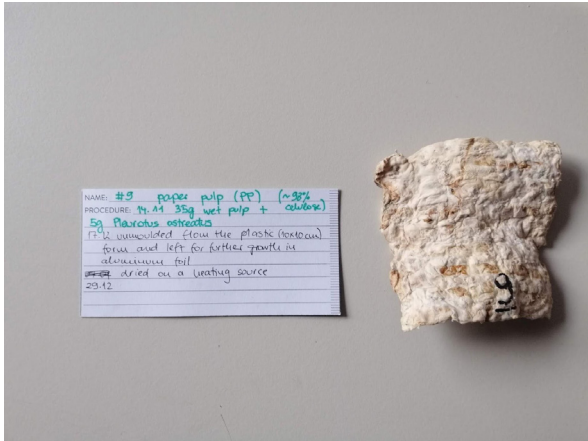 NAME: #9 paper pulp (PP) (~98%
PROCEDURE: 14.11 35g wet pulp + cellulose)
5g Pleurotus ostreatus
17.12 unmoulded from the plastic (10x10cm)
form and left for further growth in
aluminum foil
dried on a heating source
29.12
9